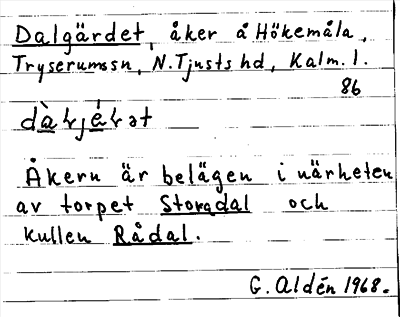 Dalgärdet, åker å Hökemåla,
Tryserumssn, N. Tjusts hd, Kalm. l.
86
Åkern är belägen i närheten
av torpet Storadal och
kullen Rådal.
G. Aldén 1968.